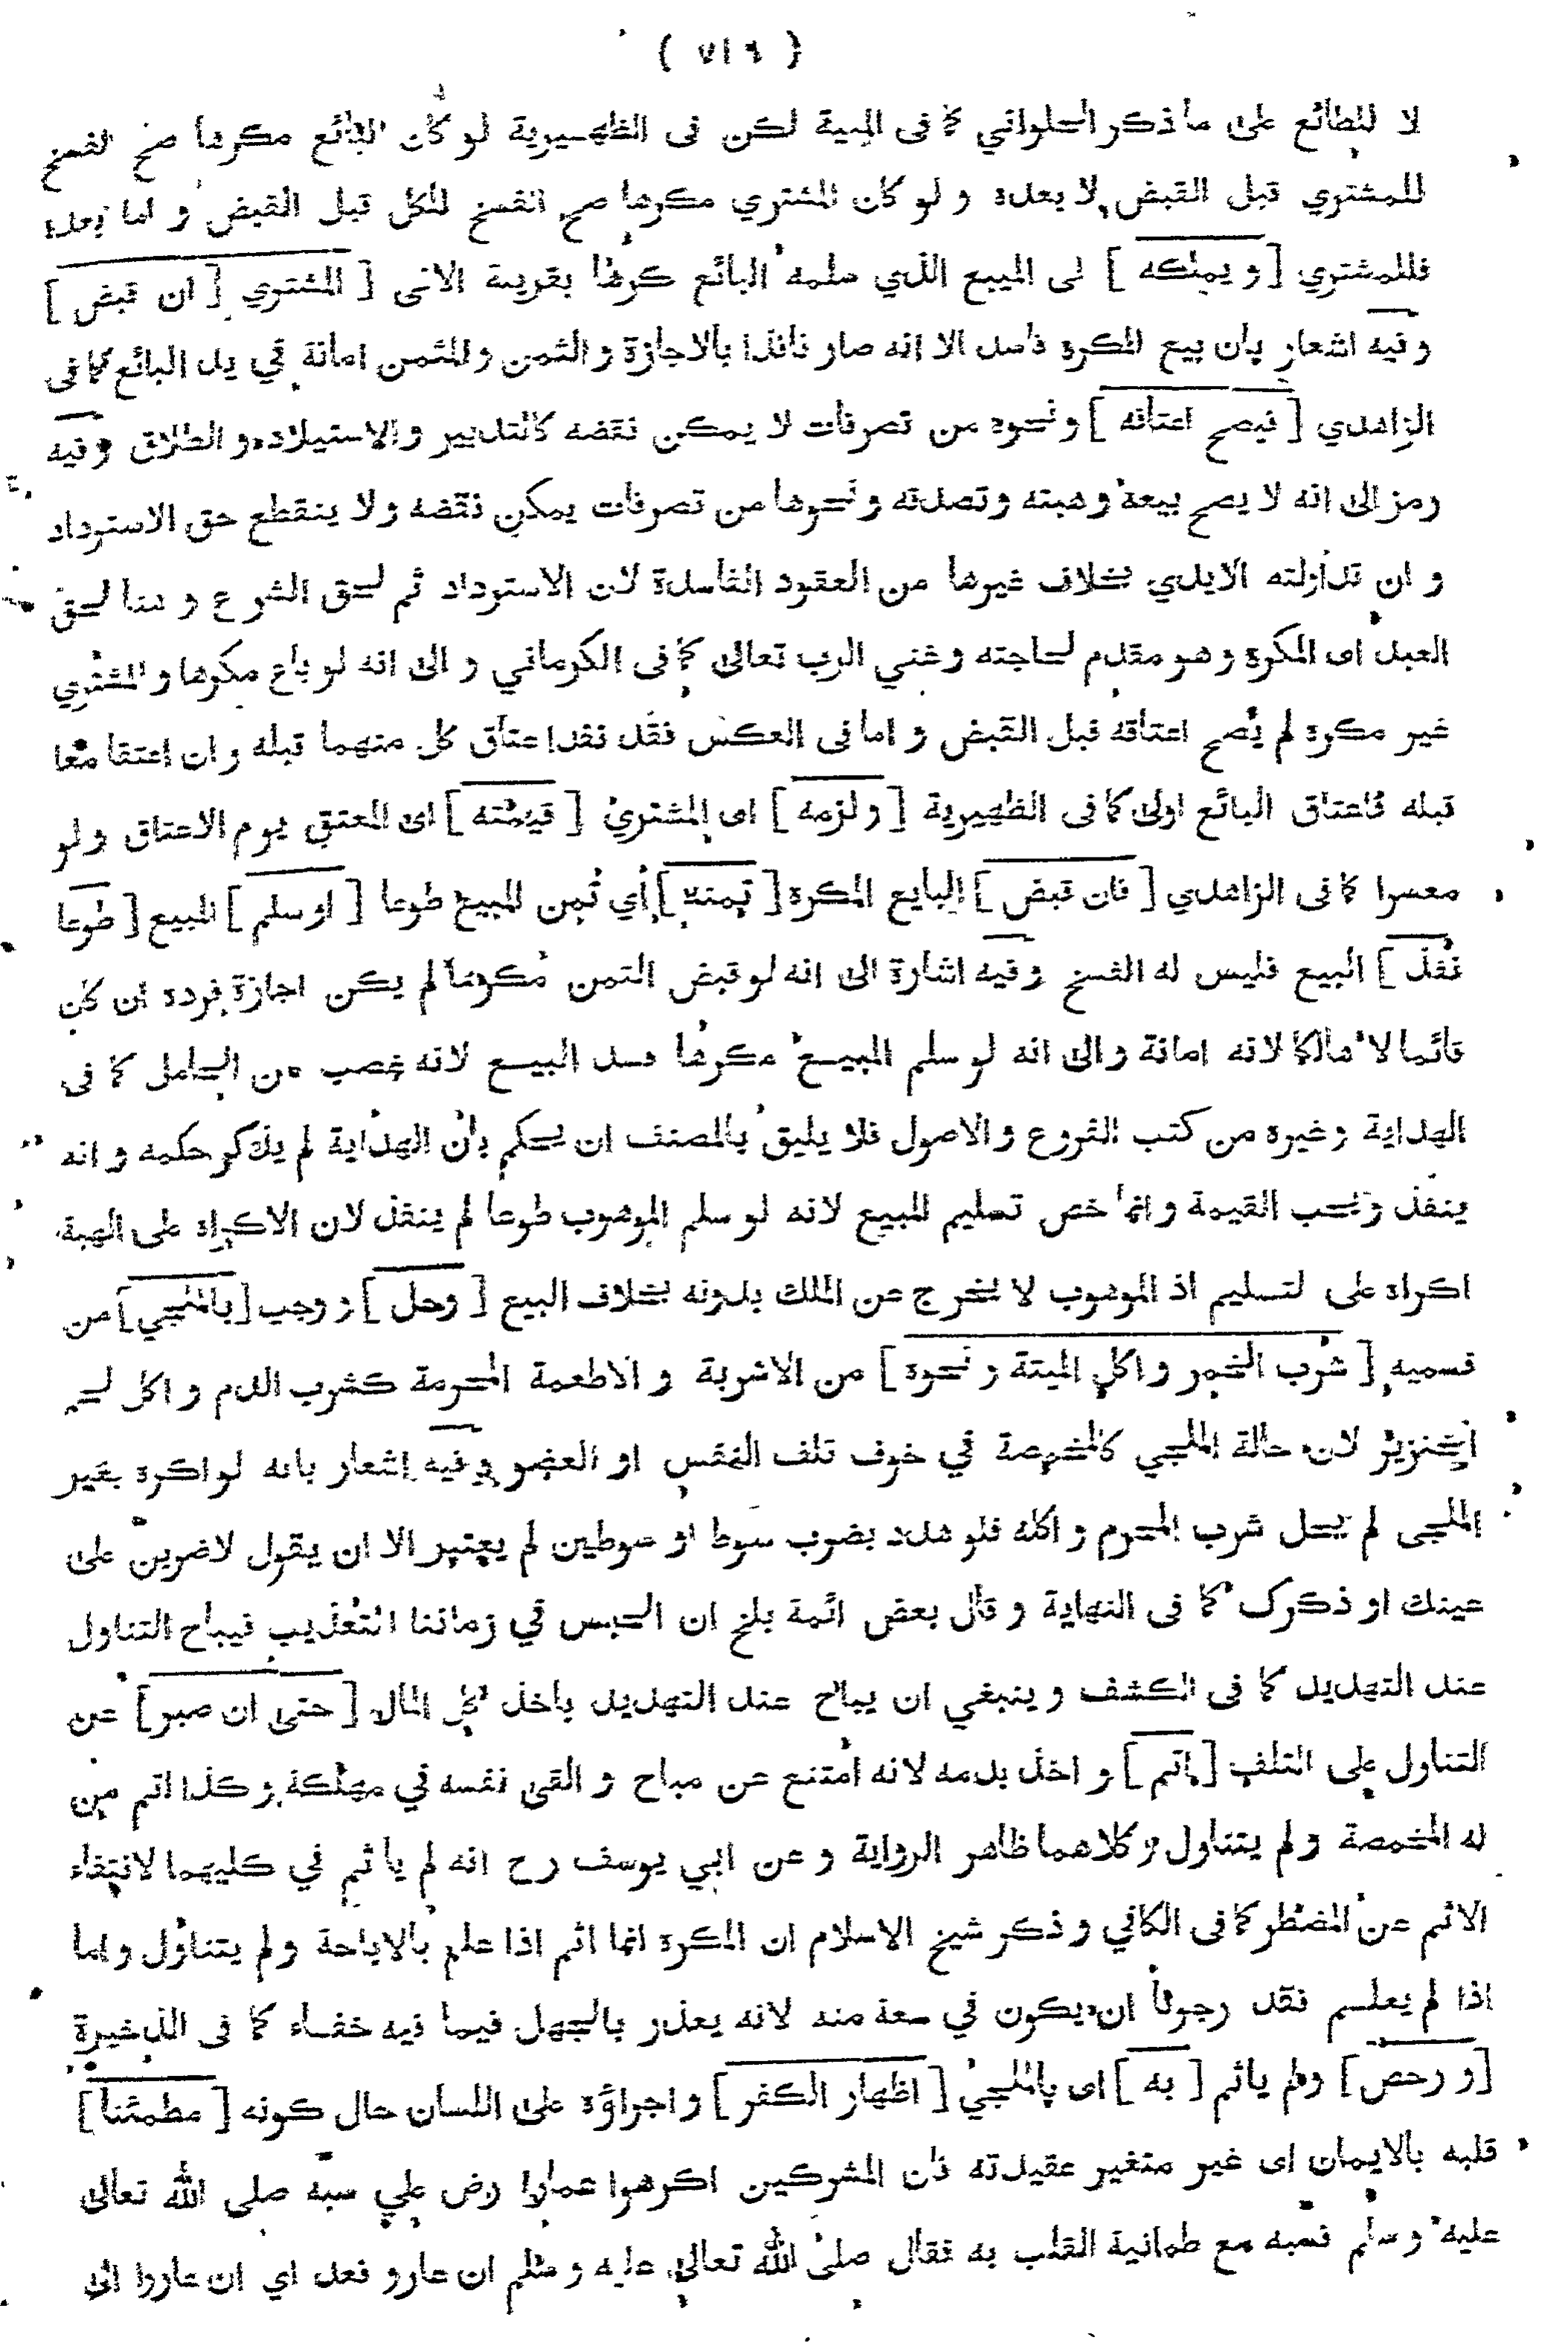 ( ٧١٩ )
لا للطائع على ما ذكر الحلواني كما فى المنية لكن فى الظهيرية لو كان البائع مكرها صح الفسخ
للمشتري قبل القبض لا بعده و لو كان المشتري مكرها صح الفسخ للكل قبل القبض و اما بعده
فللمشتري [ و يملكه ] اى المبيع الذي سلمه البائع كرها بقرينة الاتى [ المشتري [ ان قبض ]
و فيه اشعار بان بيع المكره فاسد الا انه صار نافذا بالاجازة و الثمن و المثمن امانة في يد البائع كما فى
الزاهدي [ فيصح اعتاقه ] و نحوه من تصرفات لا يمكن نقضه كالتدبير و الاستيلاد و الطلاق و فيه
رمز الى انه لا يصح بيعه و هبته و تصدقه و نحوها من تصرفات يمكن نقضه و لا ينقطع حق الاسترداد
و ان تداولته الايدي بخلاف غيرها من العقود الفاسدة لان الاسترداد ثم لحق الشرع و هنا لحق
العبد اى المكره و هو مقدم لحاجته و غني الرب تعالى كما فى الكرماني و الى انه لو باع مكرها و المشتري
غير مكره لم يصح اعتاقه قبل القبض و اما فى العكس فقد نفذ اعتاق كل منهما قبله و ان اعتقا معا
قبله فاعتاق البائع اولى كما فى الظهيرية [ و لزمه ] اى المشتري [ قيمته ] اى المعتق يوم الاعتاق و لو
معسرا كما فى الزاهدي [ فان قبض ] البايع المكره [ ثمنه ] أي ثمن المبيع طوعا [ او سلم ] المبيع [ طوعا
نفذ ] البيع فليس له الفسخ و فيه اشارة الى انه لو قبض الثمن مكرها لم يكن اجازة فرده ان كان
قائما لا هالكا لانه امانة و الى انه لو سلم المبيع مكرها فسد البيع لانه غصب من الحامل كما فى
الهداية و غيره من كتب الفروع و الاصول فلا يليق بالمصنف ان يحكم بان الهداية لم يذكر حكمه و انه
ينفذ و يجب القيمة و انما خص تسليم المبيع لانه لو سلم الموهوب طوعا لم ينفذ لان الاكراه على الهبة
اكراه على التسليم اذ الموهوب لا يخرج عن الملك بدونه بخلاف البيع [ و حل ] و وجب [ بالملجي ] من
قسميه [ شرب الخمر و اكل الميتة و نحوه ] من الاشربة و الاطعمة المحرمة كشرب الدم و اكل لحم
الخنزير لان حالة الملجي كالمخمصة في خوف تلف النفس او العضو و فيه اشعار بانه لو اكره بغير
الملجى لم يحل شرب المحرم و اكله فلو هدد بضرب سوط او سوطين لم يعتبر الا ان يقول لاضربن على
عينك او ذكرك كما فى النهاية و قال بعض ائمة بلخ ان الحبس في زماننا التعذيب فيباح التناول
عند التهديد كما فى الكشف و ينبغي ان يباح عند التهديد باخذ كل المال [ حتى ان صبر ] عن
التناول على التلف [ اثم ] و اخذ بدمه لانه امتنع عن مباح و القى نفسه في مهلكة و كذا اثم من
له المخمصة و لم يتناول و كلاهما ظاهر الرواية و عن ابي يوسف رح انه لم يأثم في كليهما لانتفاء
الاثم عن المضطر كما فى الكافي و ذكر شيخ الاسلام ان المكره انما اثم اذا علم بالاباحة و لم يتناول و اما
اذا لم يعلم فقد رجونا ان يكون في سعة منه لانه يعذر بالجهل فيما فيه خفاء كما فى الذخيرة
[ و رخص ] و لم ياثم [ به ] اى بالملجي [ اظهار الكفر ] و اجراؤه على اللسان حال كونه [ مطمئنا ]
قلبه بالايمان اى غير متغير عقيدته فان المشركين اكرهوا عمارا رض على سبه صلى الله تعالى
عليه و سلم فسبه مع طمانية القلب به فقال صلى الله تعالى عليه و سلم ان عادوا فعد اي ان عادوا الى